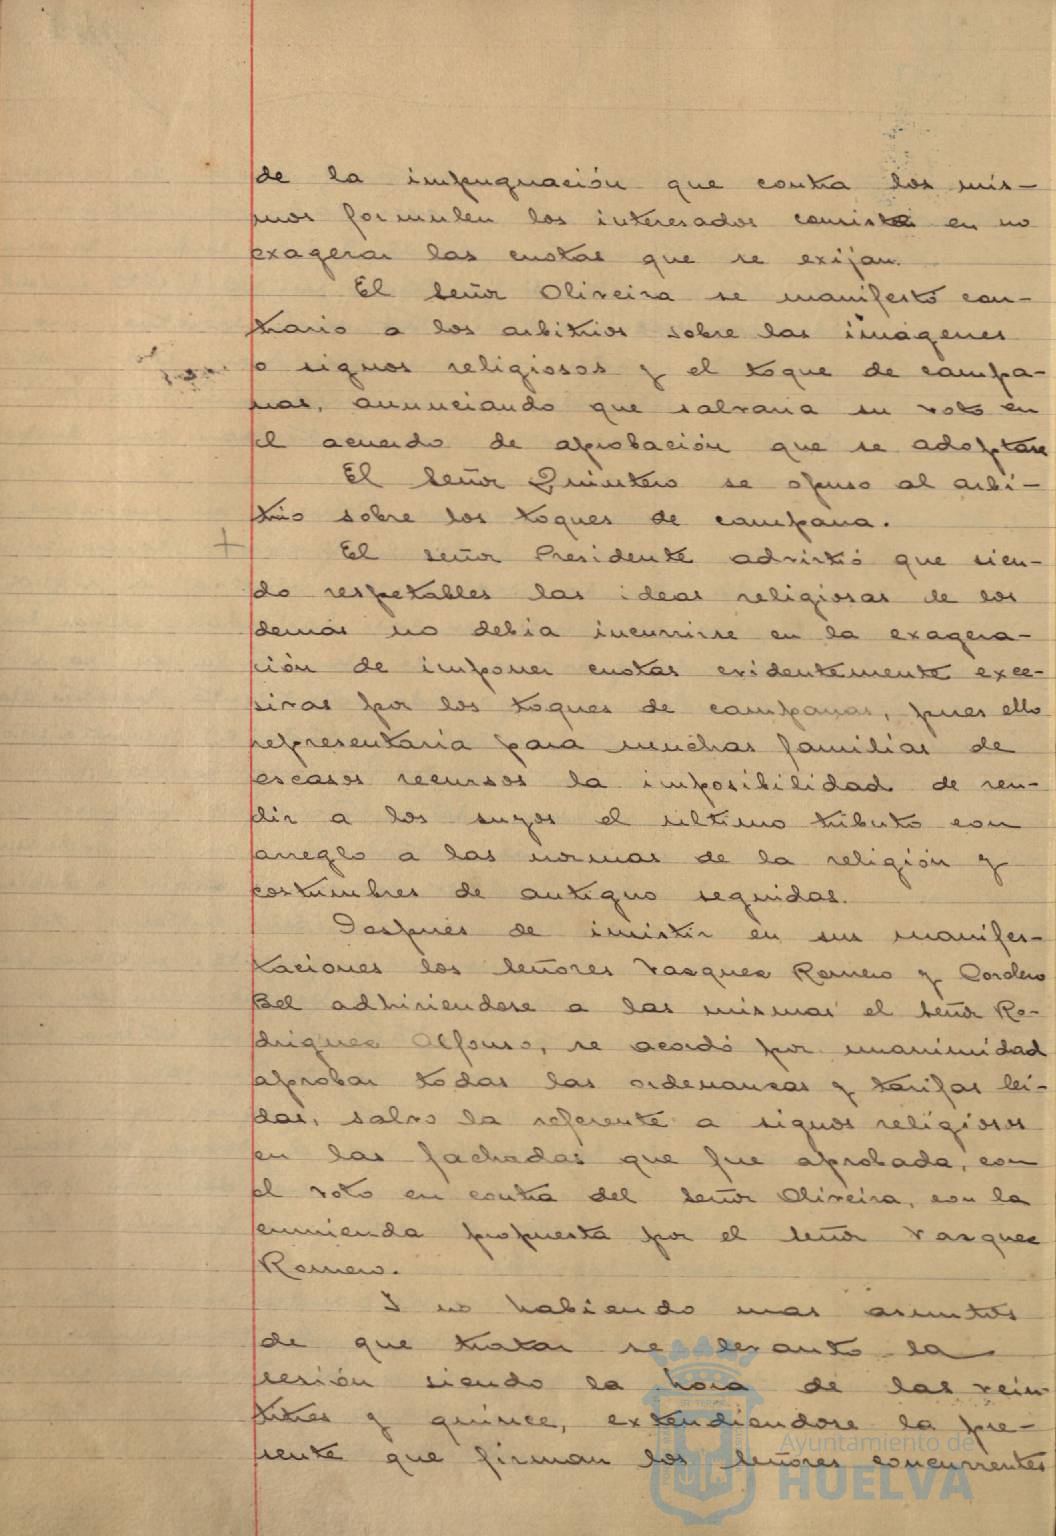 de la impugnación que contra los mis-
mos formulen los interesados consiste en no
exagerar las cuotas que se exijan.
El Señor Oliveira se manifestó con-
trario a los arbitrios sobre las imágenes
o signos religiosos y el toque de campa-
nas, anunciando que salvaria su voto en
el acuerdo de aprobación que se adoptase
El Señor Quintero se opuso al arbi-
trio sobre los toques de campana.
El señor Presidente advirtió que sien-
do respetables las ideas religiosas de los
demás no debia incurrirse en la exagera-
ción de imponer cuotas evidentemente exce-
sivas por los toques de campanas, pues ello
representaria para muchas familias de
escasos recursos la imposibilidad de ren-
dir a los suyos el ultimo tributo con
arreglo a las normas de la religión y
costumbres de antiguo seguidas.
Después de insistir en sus manifes-
taciones los Señores Vazquez Romero y Cordero
Bel adhiriendose a las mismas el Señor Ro-
driguez Alfonso, se acordó por unanimidad
aprobar todas las ordenanzas y tarifas lei-
das, salvo la referente a signos religiosos
en las fachadas que fue aprobada, con
el voto en contra del Señor Oliveira, con la
enmienda propuesta por el Señor Vazquez
Romero.
Y no habiendo mas asuntos
de que tratar se levanto la
sesión siendo la hora de las vein-
titres y quince, extendiendose la pre-
sente que firman los Señores concurrentes
Ayuntamiento de
HUELVA